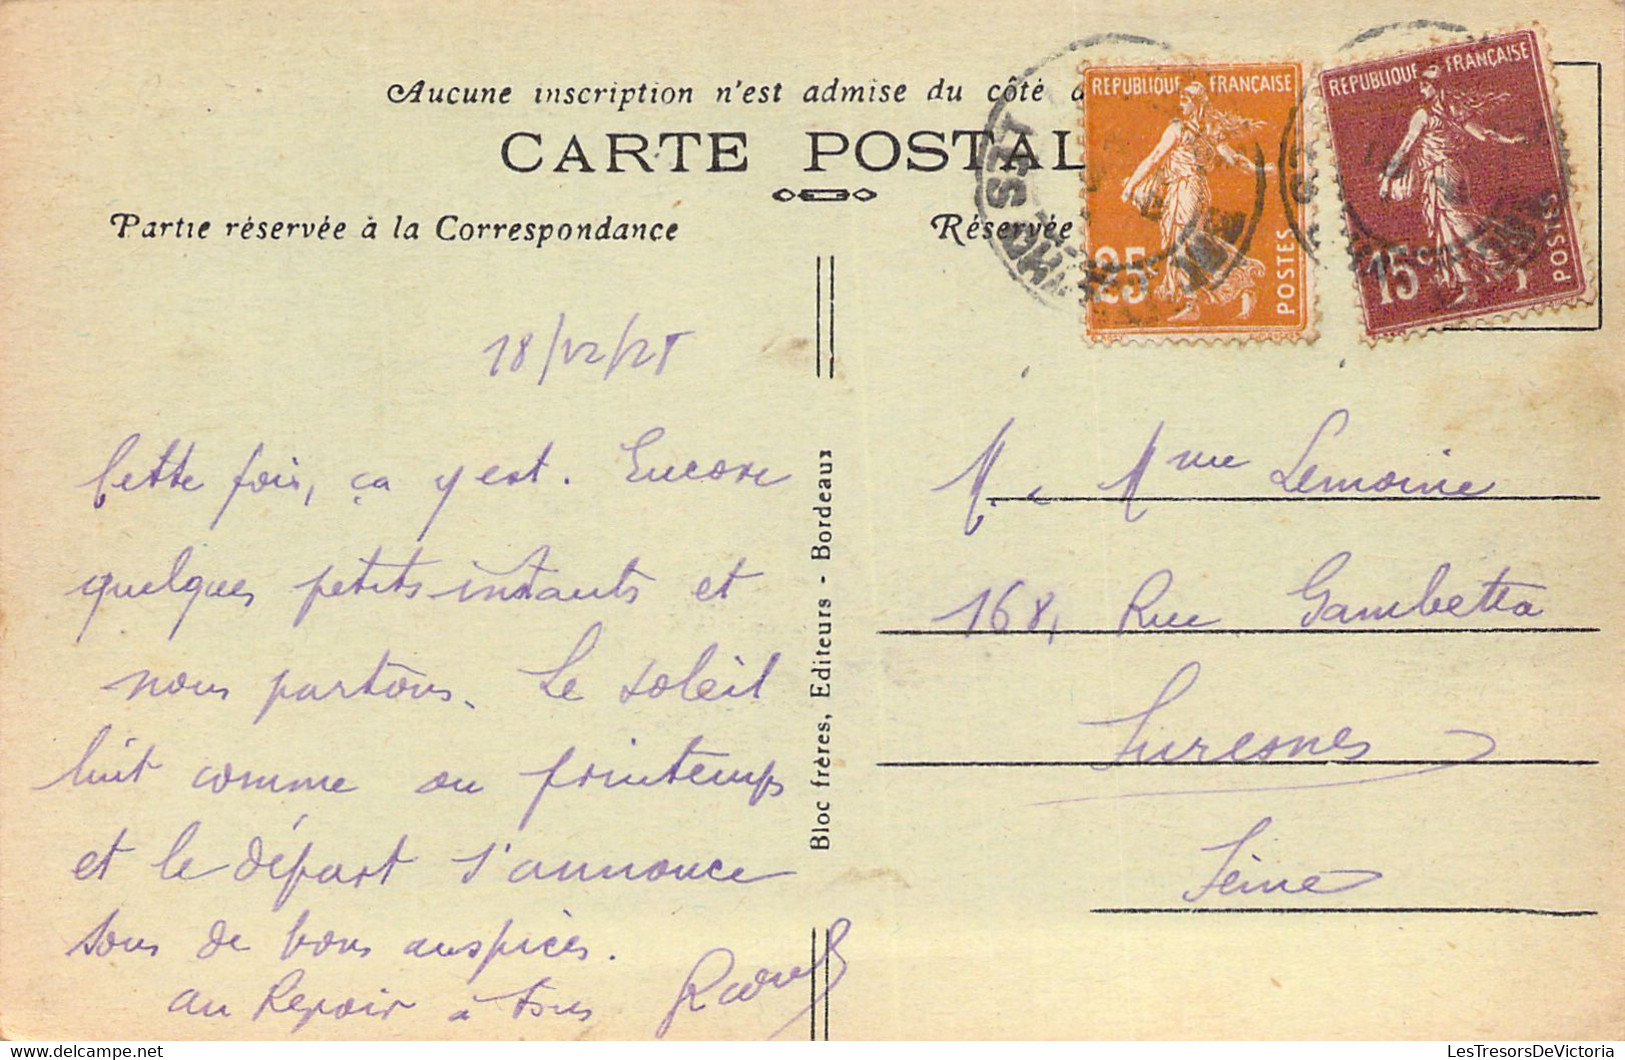 Aucune inscription n'est admise du côté d
CARTE POSTAL
Partie réservée à la Correspondance
Réservée
REPUBLIQUE FRANÇAISE
25
POSTES
REPUBLIQUE FRANÇAISE
15c
POSTES
18/12/28
Cette fois, ça y est. Encore
quelques petits instants et
nous partons. Le soleil
luit comme au printemps
et le départ s'annonce
sous de bons auspices.
au Revoir à tous Raoul
Bloc frères, Editeurs - Bordeaux
M. & Mme Lemoine
168, Rue Gambetta
Suresnes
Seine
LesTresorsDeVictoria